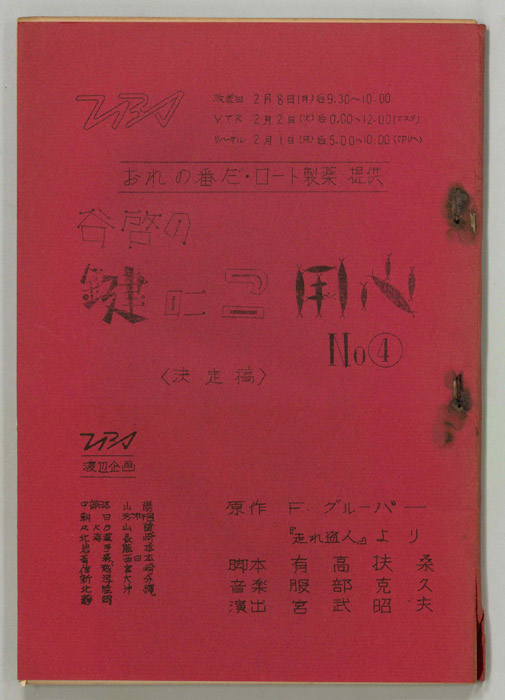 TBS
放送日 2月8日(月)后9.30〜10.00
VTR 2月2日(火)后0.00〜12.00
リハーサル 2月1日(月)后5.00〜10:00
おれの番だ・ロート製薬 提供
谷啓の
鍵にご用心
No④
〈決定稿〉
TBS
渡辺企画
原作 F・グルーバー
『走れ盗人』より
脚本 有高扶桑
音楽 服部克久
演出 宮武昭夫